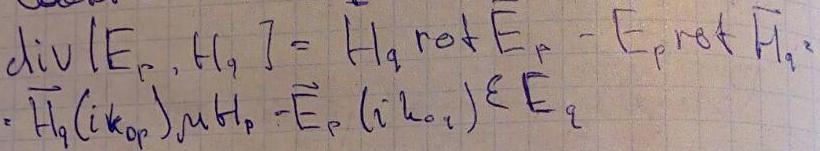 div[E_p, H_q] = H⃗_q rot E⃗_p - E_p rot H⃗_q =
= H⃗_q(ik_{op})μH_p - E⃗_p(ik_{oq})εE_q